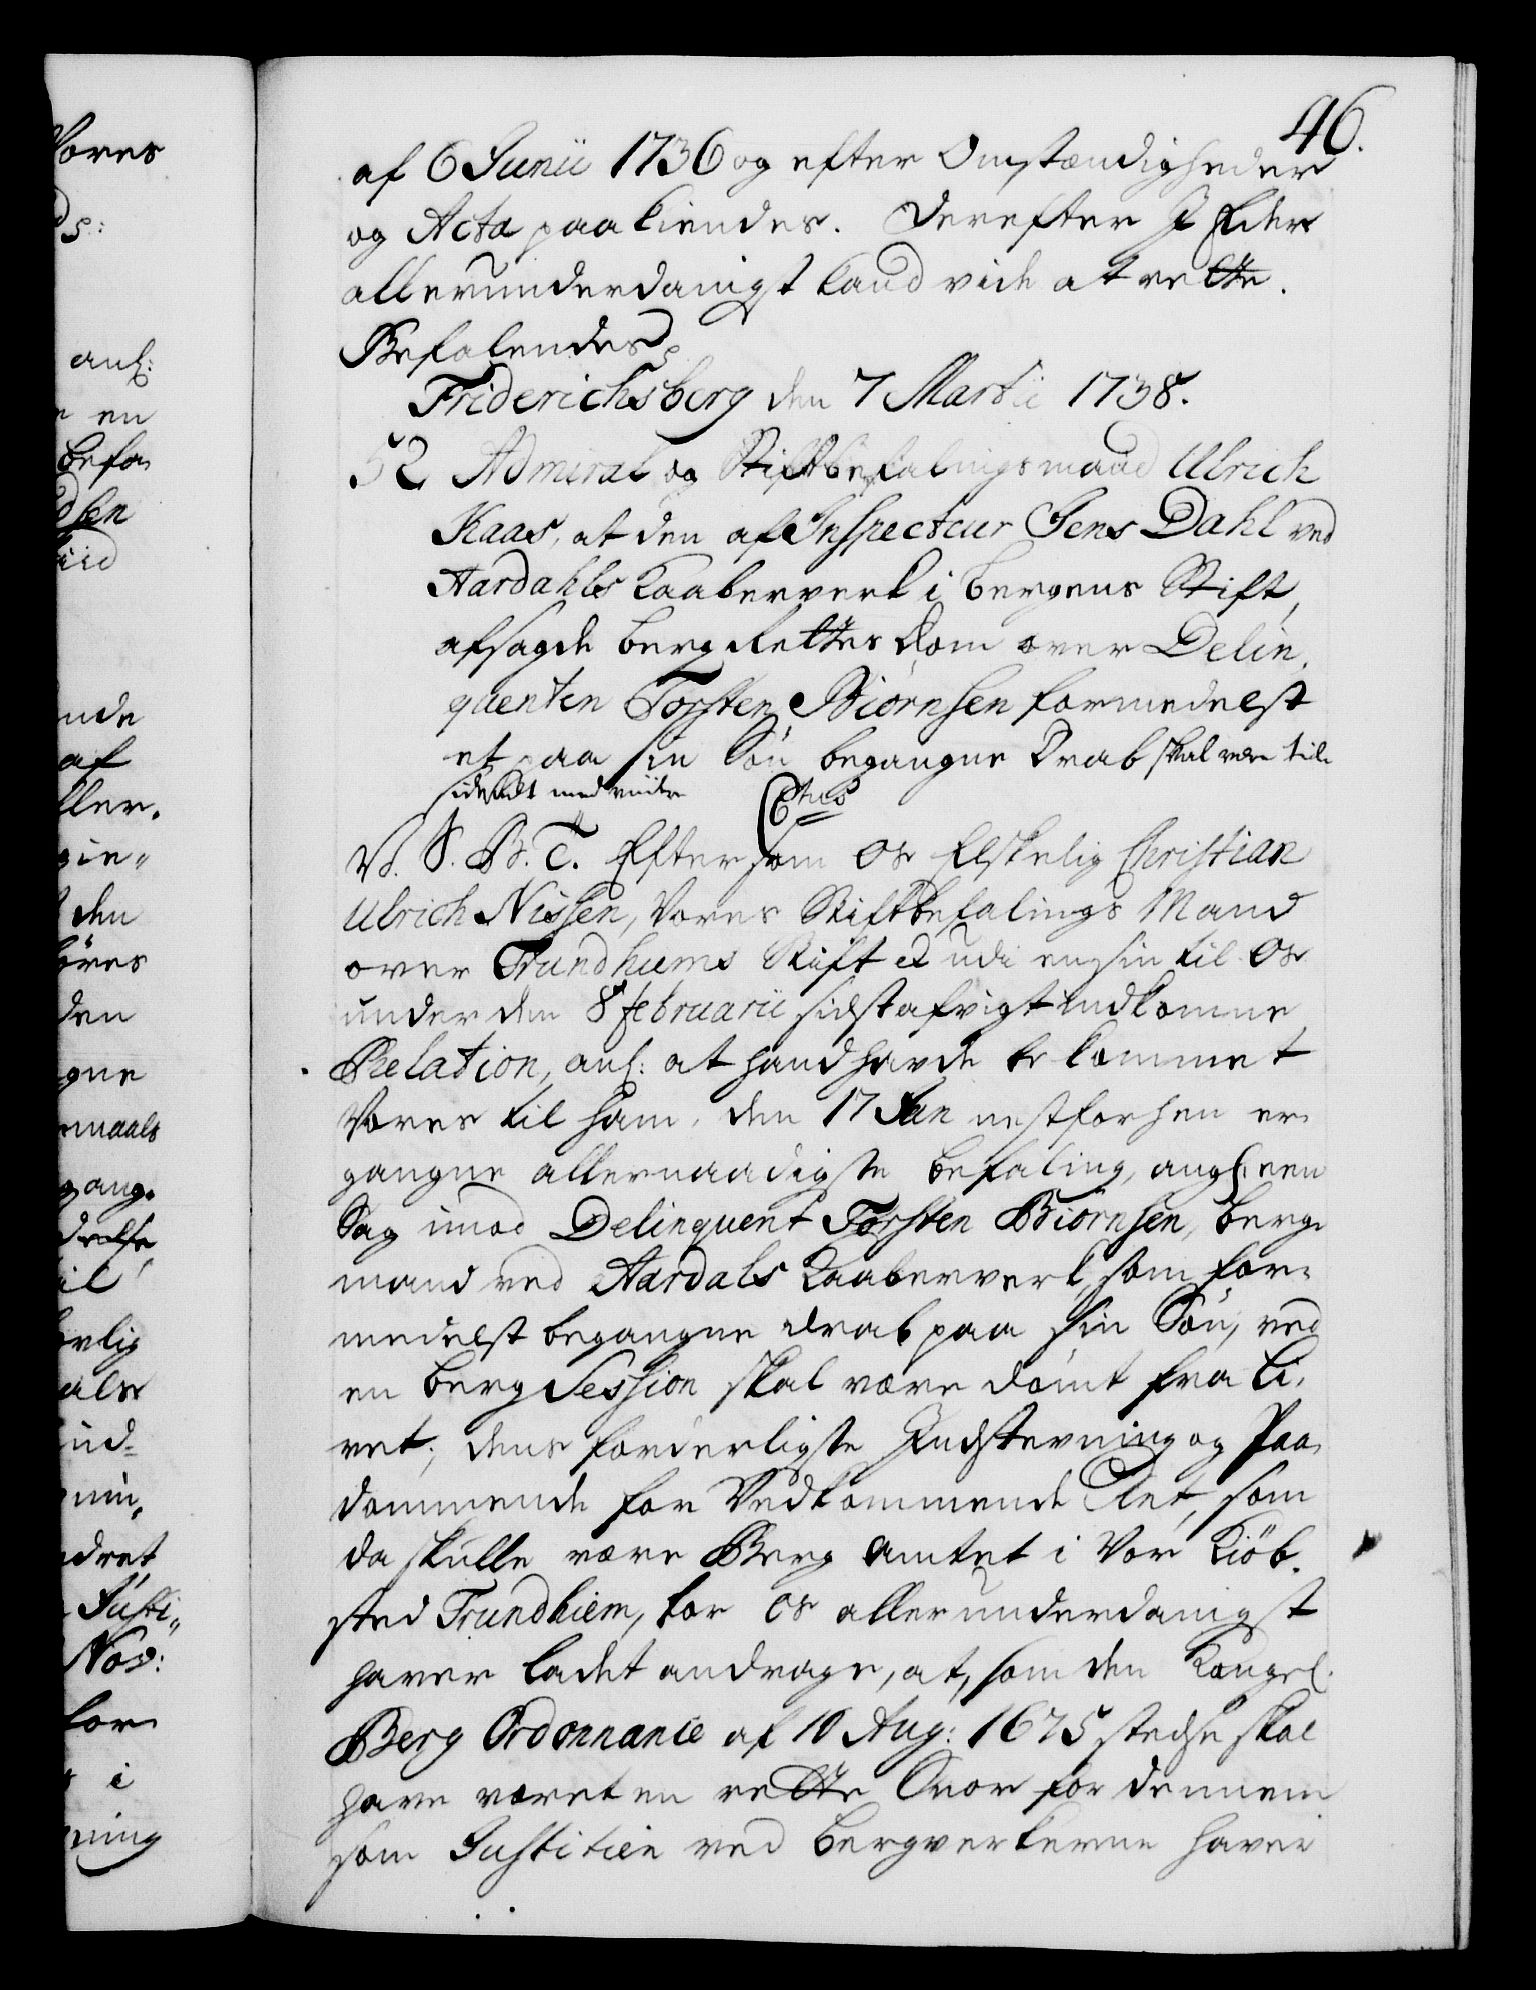 46.
af 6 Junii 1736 og efter Omstændigheder
og Acta paakiendes. Derefter I Eder
allerunderdanigst kand vide at rette.
Befalendes
Friderichsberg den 7 Martii 1738.
52 Admiral og Stiftbefalingsmand Ulrich
Kaas, at den af Inspecteur Jens Dahl ved
Aardahls Kaaberverk i Bergens Stift,
afsagde BergRettes Dom over Delin-
quenten Torsten Biørnsen formedelst
et paa sin Søn begangne Drab skal være til-
sidesadt med viidere
V. S. B. T. Eftersom Os Elskelig Christian
Ulrich Nissen, Vores Stiftbefalings Mand
over Trundhiems Stift udi en sin til Os
under den 8 Februarii sidstafvigt indkomne
Relation, anl: at hand havde bekommet
Vores til ham, den 17 Jan nestforhen er-
gangne allernaadigste Befaling, angl: en
Sag imod Delinquent Torsten Biørnsen, Berg-
mand ved Aardals Kaaberverk, som for-
medelst begangne drab paa sin Søn, ved
en Berg Session skal være dømt fra Li-
vet; dens forderligste Indstevning og Paa-
dømmende for Vedkommende Ret, som
da skulle være Berg Amtet i Vor Kiøb-
sted Trundhiem, for Os allerunderdanigst
haver ladet andrage, at, som den Kongel.
Berg Ordonnance af 10 Aug: 1675 stedse skal
have været en rette Snor for dennem
som Justitien ved Bergverkerne haver